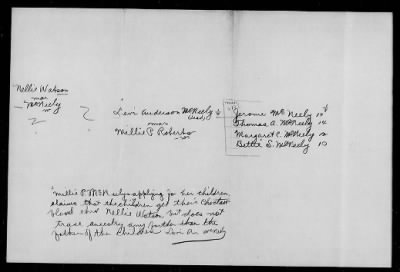 Nellie Watson
nee
McNeely
Levi Anderson McNeely
(dead)
nee
Millie P. Roberts
Jerome McNeely
Thomas A. McNeely 14
Margaret C. McNeely 12
Bettie E. McNeely 10
"Millie P. McNeely applying for her children,
claims that the children get their Choctaw
blood from Nellie Watson, but does not
trace ancestry any further than the
father of the Children Levi A. McNeely